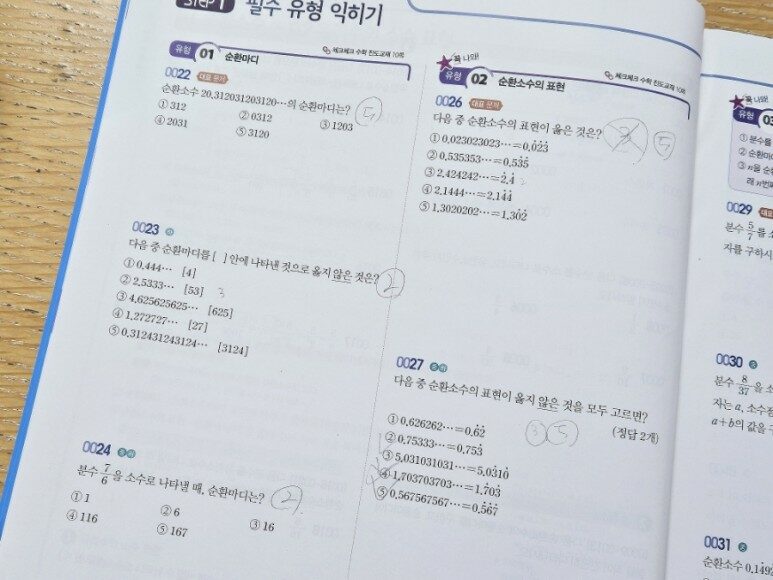 STEP 1 필수 유형 익히기
유형 01 순환마디
체크체크 수학 진도교재 10쪽
0022 대표 문제
순환소수 20.312031203120…의 순환마디는? ⑤
① 312 ② 0312 ③ 1203
④ 2031 ⑤ 3120
0023
다음 중 순환마디를 [ ] 안에 나타낸 것으로 옳지 않은 것은? ②
① 0.444… [4]
② 2.5333… [53] 3
③ 4.625625625… [625]
④ 1.272727… [27]
⑤ 0.312431243124… [3124]
0024
분수 7/6 을 소수로 나타낼 때, 순환마디는? ②
① 1 ② 6 ③ 16
④ 116 ⑤ 167
꼭 나와!
유형 02 순환소수의 표현
체크체크 수학 진도교재 10쪽
0026 대표 문제
다음 중 순환소수의 표현이 옳은 것은? ⑤
① 0.023023023…=0.0̇23̇
② 0.535353…=0.53̇5̇
③ 2.424242…=2̇.4̇ 2
④ 2.1444…=2.14̇4̇
⑤ 1.3020202…=1.30̇2̇
0027
다음 중 순환소수의 표현이 옳지 않은 것을 모두 고르면?
(정답 2개)
③ ⑤
① 0.626262…=0.6̇2̇
② 0.75333…=0.753̇
③ 5.031031031…=5.0̇310̇
④ 1.703703703…=1.7̇03̇
⑤ 0.567567567…=0.5̇6̇7̇
꼭 나와!
유형 03
① 분수를
② 순환마디
③ n을 순환
래 n번째
0029 대표
분수 5/7 를 소
자를 구하시
0030
분수 8/37 을 소
자는 a, 소수점
a+b의 값을 구
0031
순환소수 0.149